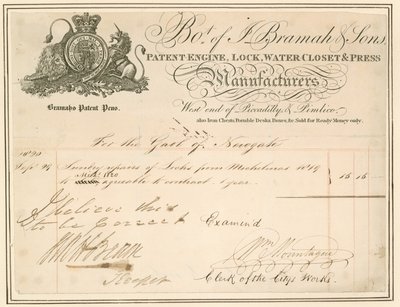 Bot. of J. Bramah & Sons,
PATENT ENGINE, LOCK, WATER CLOSET & PRESS
Manufacturers
Bramahs Patent Pens.
West end of Piccadilly, & Pimlico,
also Iron Chests, Portable Desks, Boxes, &c. Sold for Ready Money only.
For the Gaol of Newgate
1820
Sept 29 Sundry repairs of Locks from Michaelmas 1819
to Mich.s 1820 agreeable to contract 1 year 16 16
I believe this
to be correct Examin'd
Wm. Mountague
Keeper Clerk of the Citys Works.